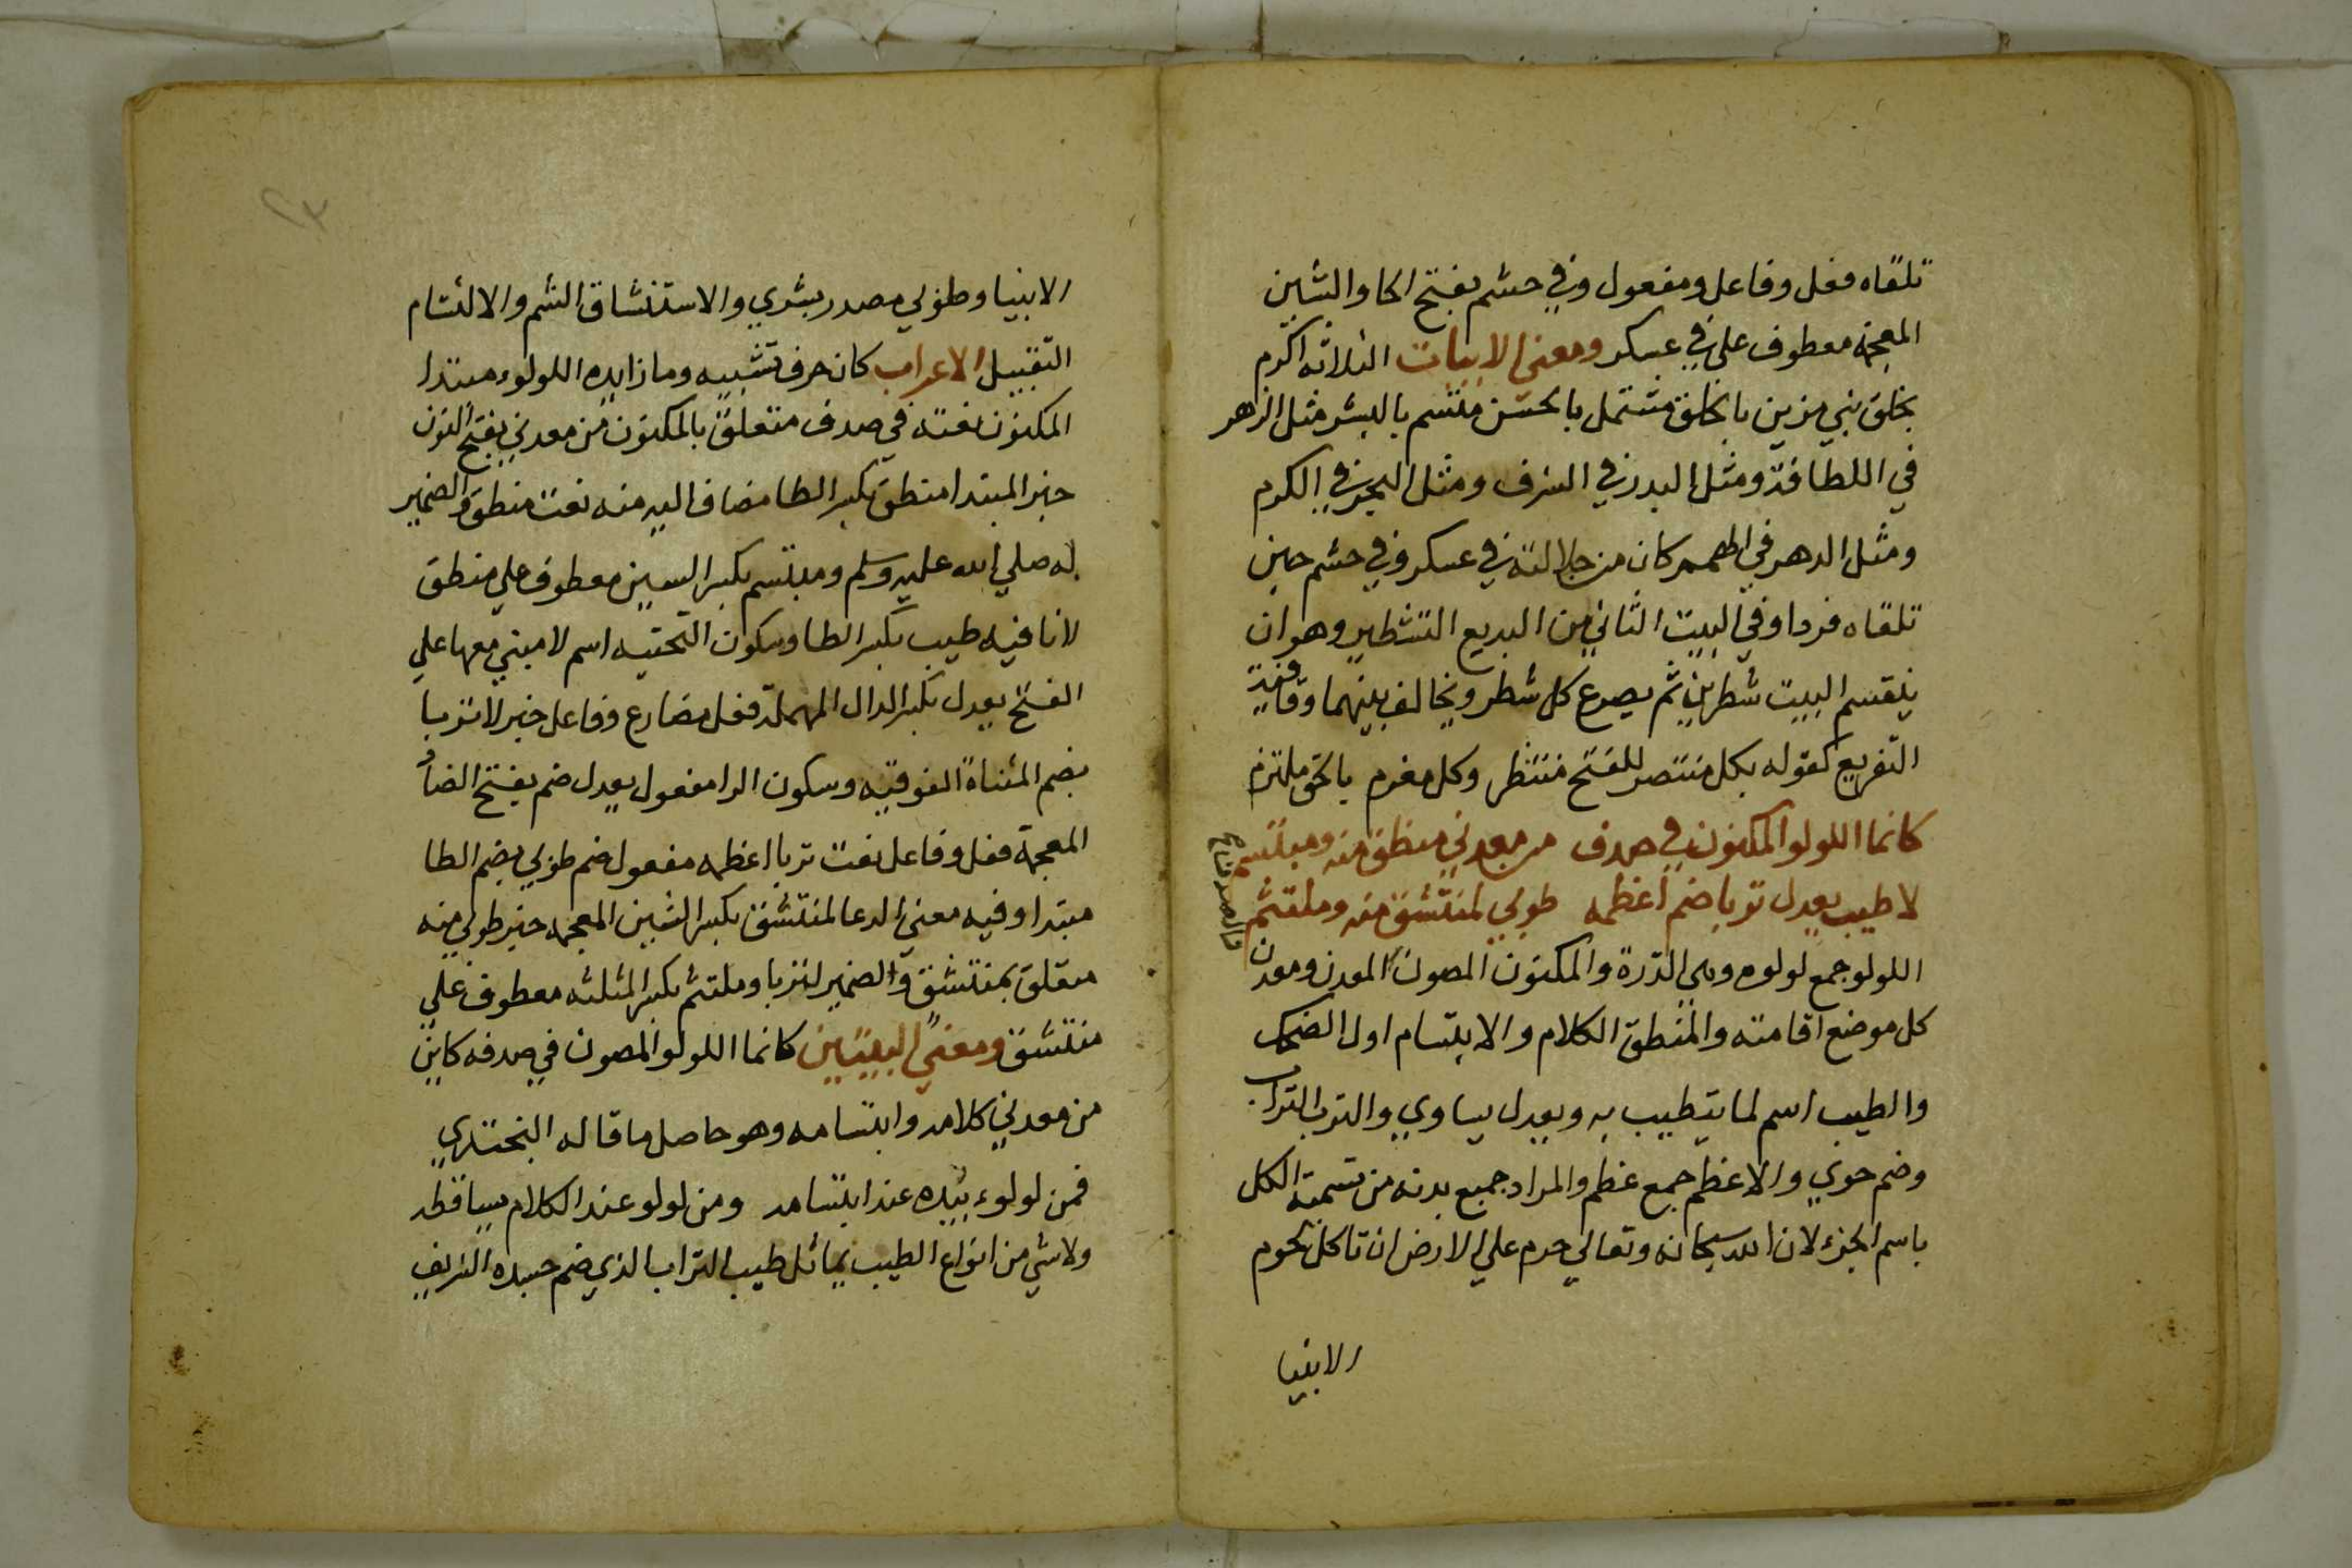 تلقاه فعل وفاعل ومفعول وفي حشم بفتح الحا والشين
المعجمة معطوف علي في عسكر ومعني الابيات الثلاثه اكرم
بخلق نبي مزين بالخلق مشتمل بالحسن متسم بالبشر مثل الزهر
في اللطافة ومثل البدر في الشرف ومثل البحر في الكرم
ومثل الدهر في الهمم كان من جلالته في عسكر وفي حشم حين
تلقاه فردا وفي البيت الثاني من البديع التشطير وهو ان
ينقسم البيت شطرين ثم يصرع كل شطر ويخالف بينهما وقافية
التفريع كقوله بكل منتصر للفتح منتظر وكل مغرم بالحق ملتزم
كانما اللولو المكنون في صدف من معدني منطق منه ومبتسم
لا طيب يعدل تربا ضم اعظمه طوبي لمنتشق منه وملتثم
اللولو جمع لولوه وهي الدرة والمكنون المصون المعدن ومعدن
كل موضع اقامته والمنطق الكلام والابتسام اول الضحك
والطيب اسم لما يتطيب به ويعدل يساوي والترب التراب
وضم حوي والاعظم جمع عظم والمراد جميع بدنه من تسمية الكل
باسم الجزء لان الله سبحانه وتعالي حرم علي الارض ان تاكل لحوم
الانبيا
٢٣
الانبيا وطوبي مصدر بشري والاستنشاق الشم والالتثام
التقبيل الاعراب كان حرف تشبيه وما زايده اللولوء مبتدا
المكنون نعته في صدف متعلق بالمكنون من معدني بفتح النون
خبر المبتدا منطق بكسر الطا مضاف اليه منه نعت منطق والضمير
له صلي الله عليه وسلم ومبتسم بكسر السين معطوف علي منطق
لا نافيه طيب بكسر الطا وسكون التحتيه اسم لا مبني معها علي
الفتح يعدل بكسر الدال المهملة فعل مضارع وفاعل خبر لا تربا
بضم المثناة الفوقيه وسكون الرا مفعول يعدل ضم بفتح الضاد
المعجمة فعل وفاعل نعت تربا اعظمه مفعول ضم طوبي بضم الطا
مبتدا وفيه معني الدعا لمنتشق بكسر الشين المعجمه خبر طوبي منه
متعلق بمنتشق والضمير لتربا وملتثم بكسر المثلثه معطوف علي
منتشق ومعني البيتين كانما اللولو المصون في صدفه كاين
من معدني كلامه وابتسامه وهو حاصل ما قاله البحتري
فمن لولوء يبده عند ابتسامه ومن لولو عند الكلام يساقطه
ولا شي من انواع الطيب يماثل طيب التراب الذي ضم جسده الشريف